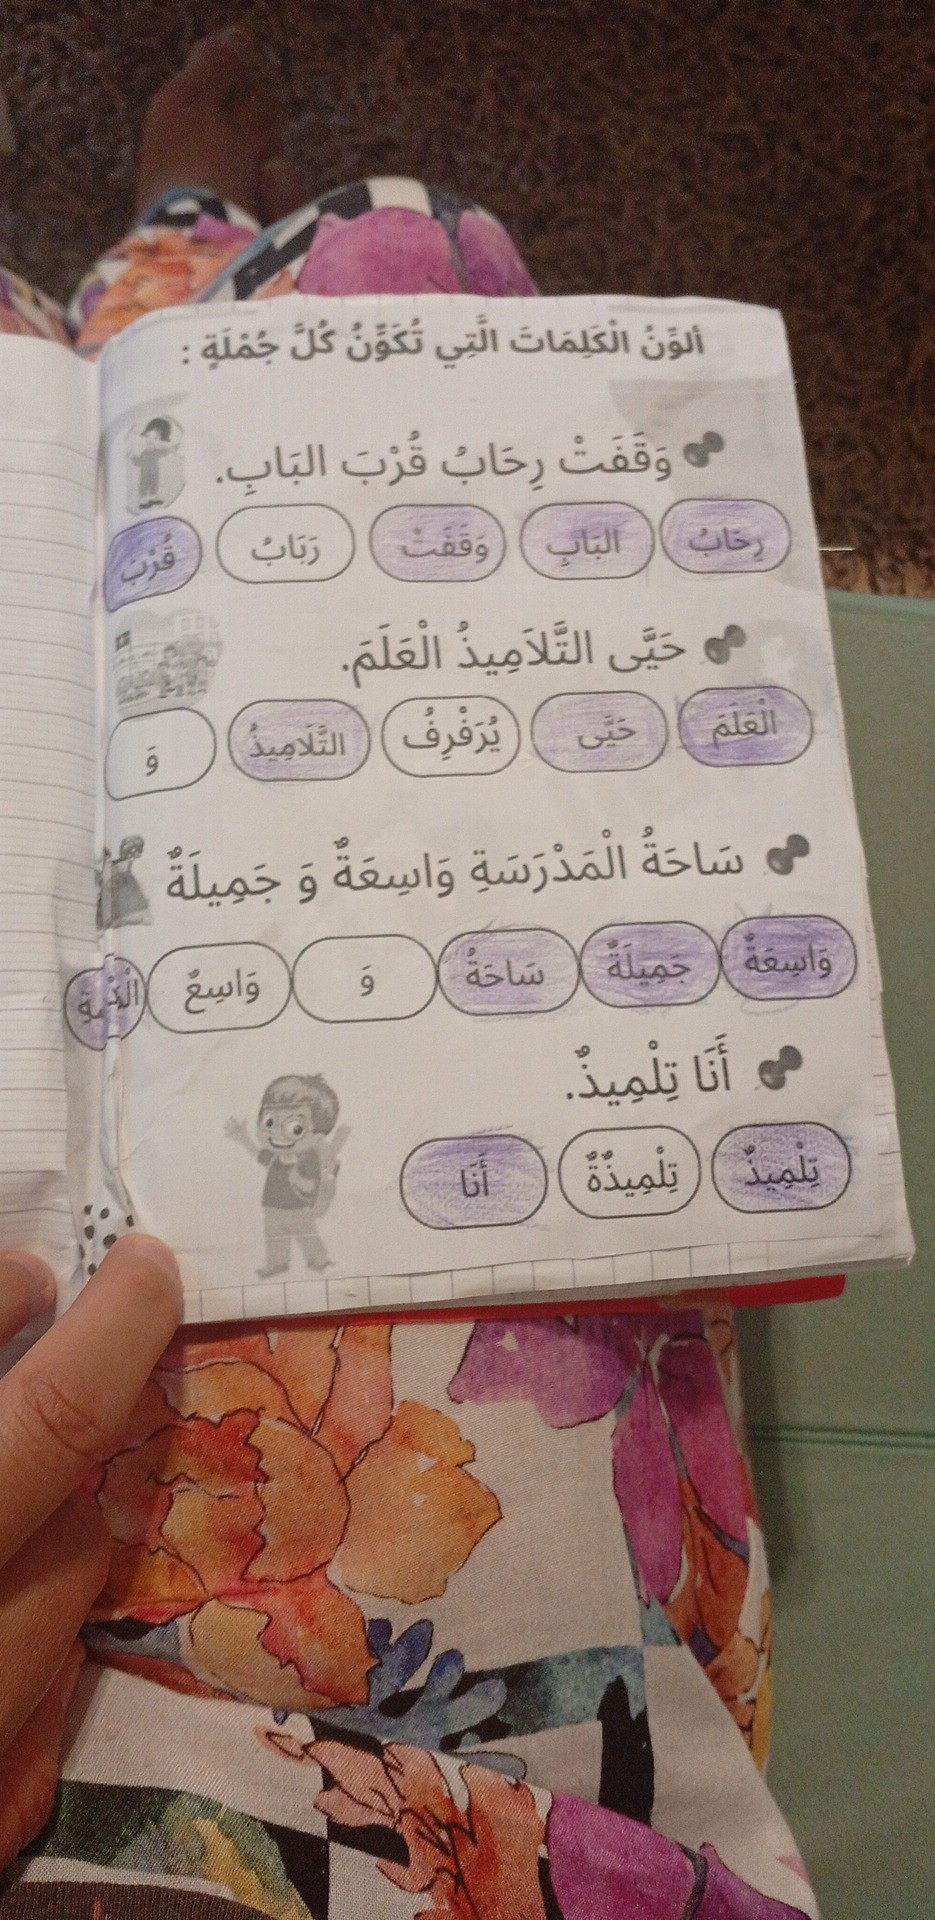 ألوِّنُ الْكَلِمَاتَ الَّتِي تُكَوِّنُ كُلَّ جُمْلَةٍ :
وَقَفَتْ رِحَابُ قُرْبَ البَابِ.
رِحَابُ البَابِ وَقَفَتْ رَبَابُ قُرْبَ
حَيَّى التَّلاَمِيذُ الْعَلَمَ.
الْعَلَمَ حَيَّى يُرَفْرِفُ التَّلَامِيذُ وَ
سَاحَةُ الْمَدْرَسَةِ وَاسِعَةٌ وَ جَمِيلَةٌ
وَاسِعَةٌ جَمِيلَةٌ سَاحَةُ وَ وَاسِعٌ
أَنَا تِلْمِيذٌ.
تِلْمِيذٌ تِلْمِيذَةٌ أَنَا